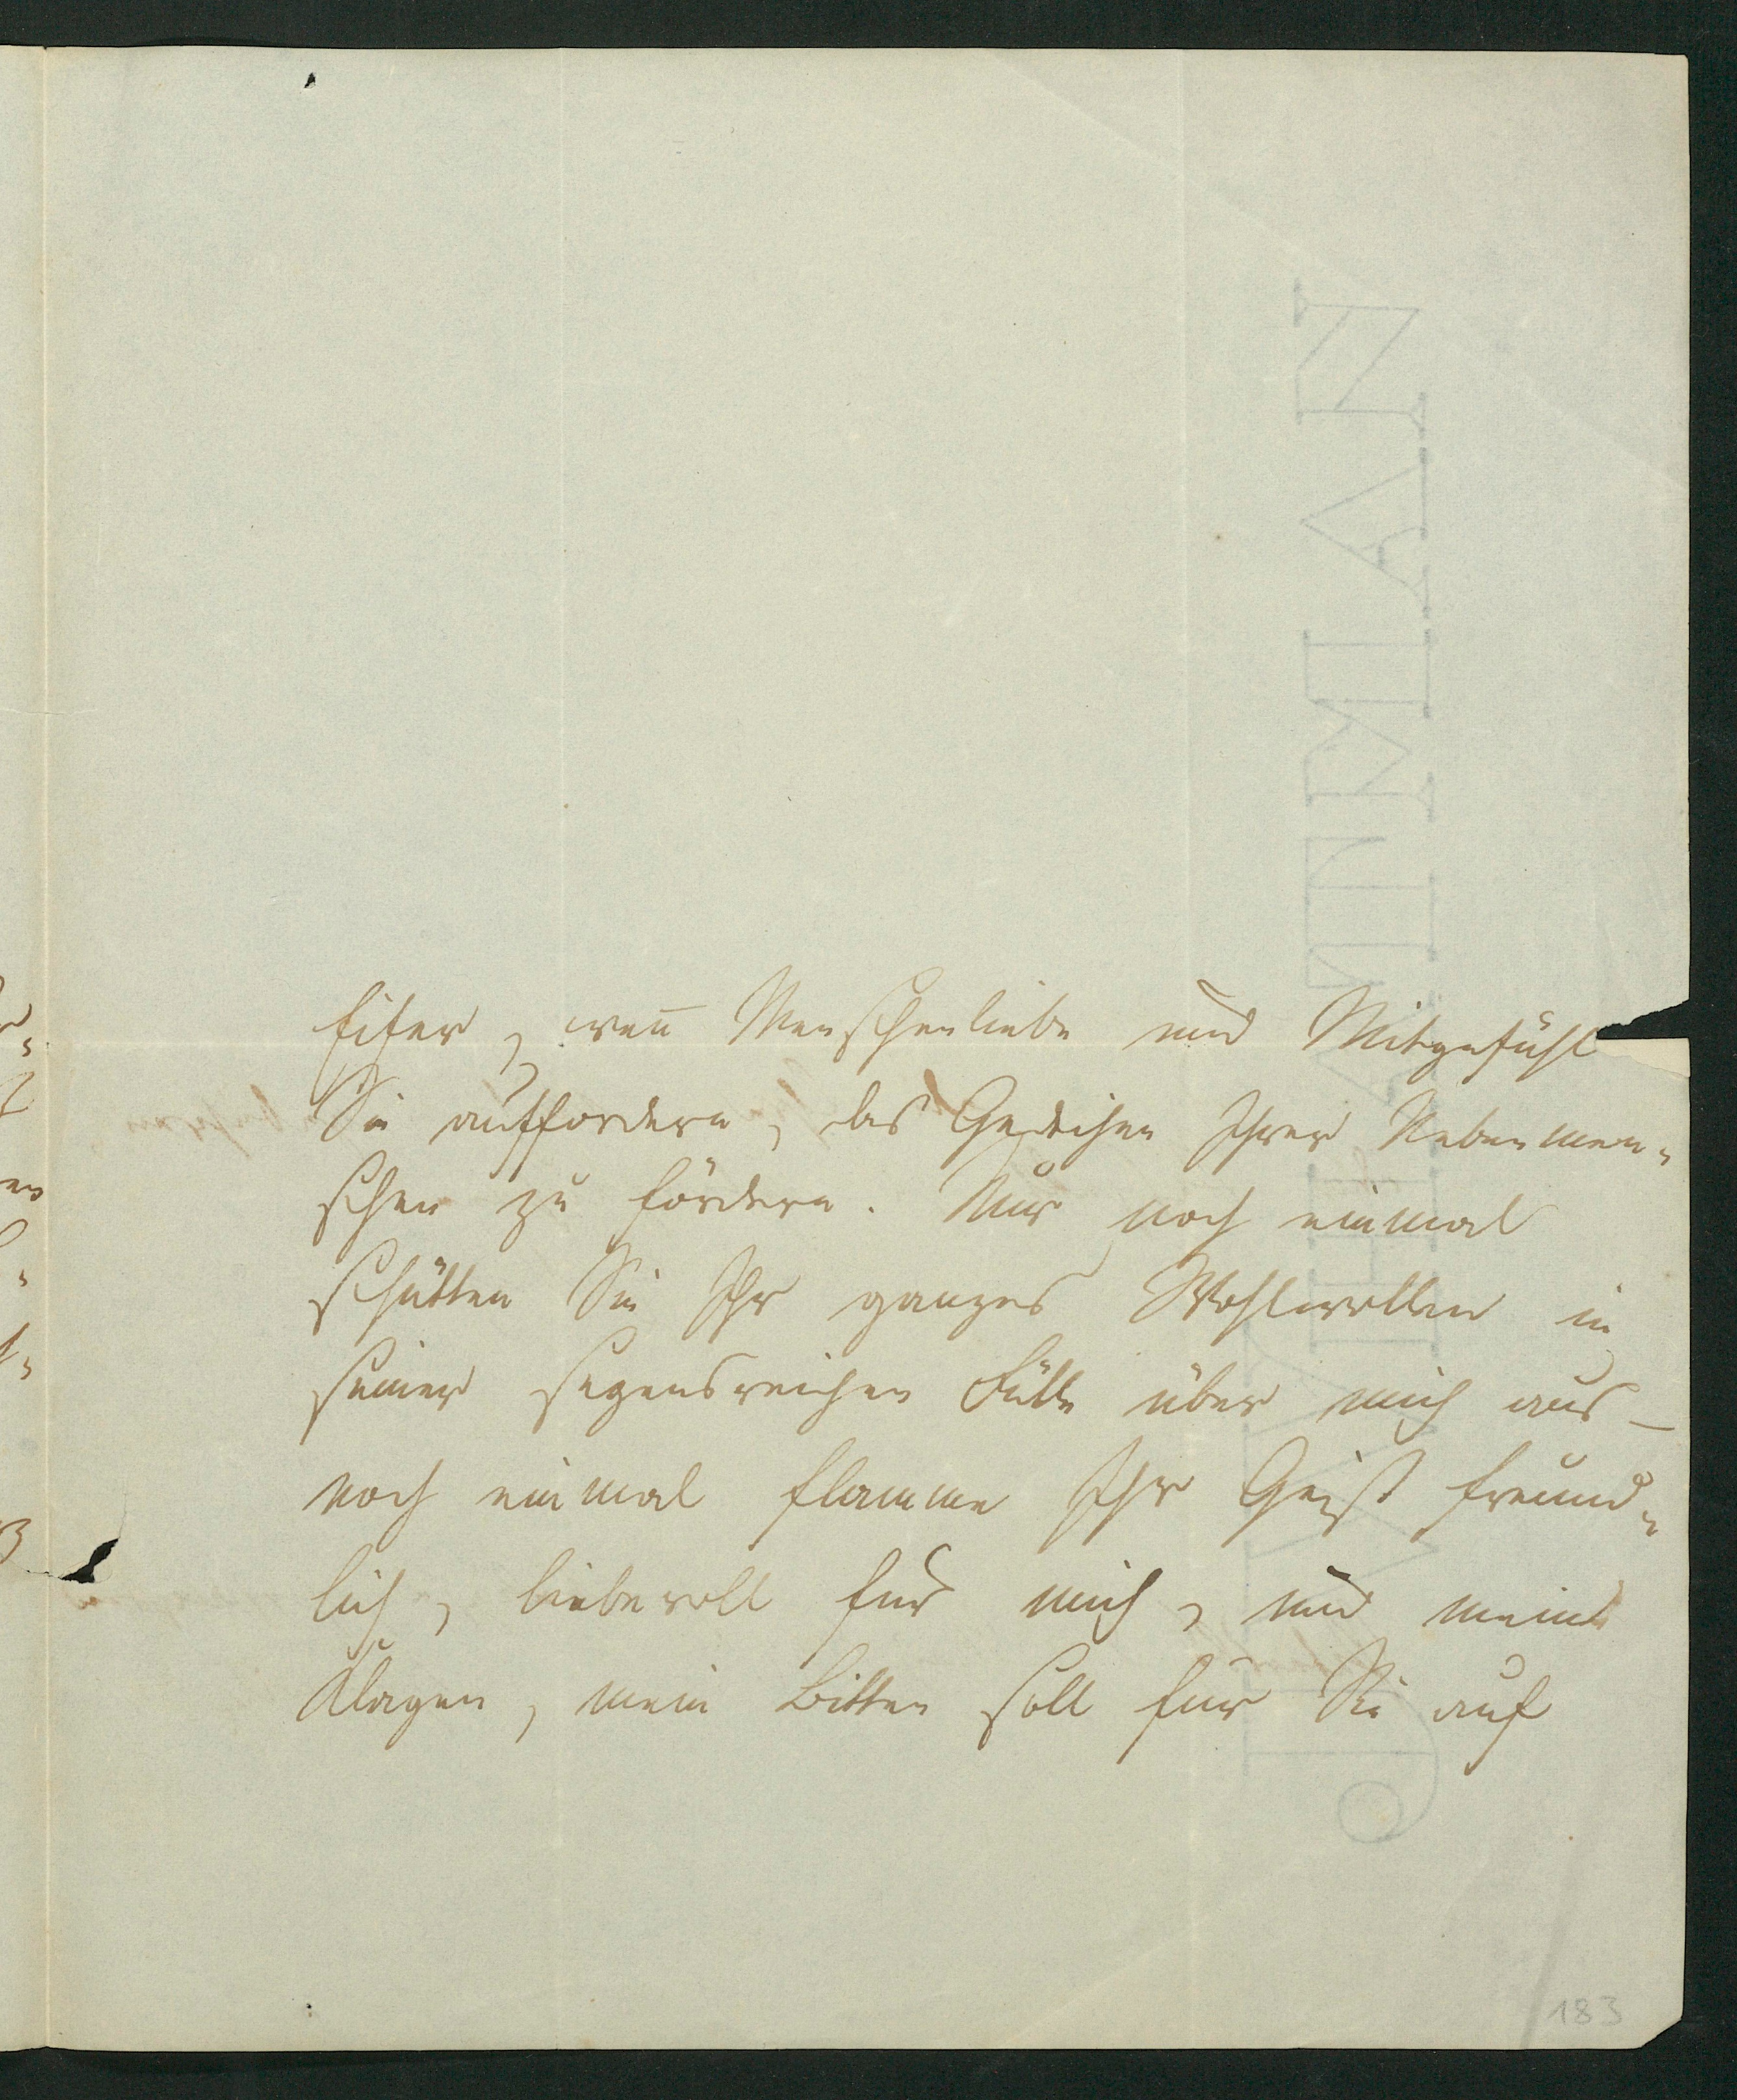 Eifer, weñ Menschenliebe und Mitgefühl
Sie auffordern, das Gedeihen Ihrer Nebenmen-
schen zu fördern. Nur noch einmal
schütten Sie Ihr ganzes Wohlwollen in
seiner segensreichen Fülle über mich aus –
noch einmal flamme Ihr Geist freund-
lich, liebevoll für mich, und meine
Klagen, mein Bitten soll für Sie auf
183
J WHATMAN